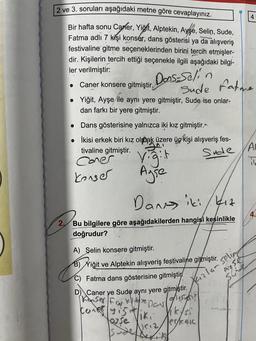 2 ve 3. soruları aşağıdaki metne göre cevaplayınız.
4
Bir hafta sonu Caner, Yiğit, Alptekin, Ayşe, Selin, Sude,
Fatma adlı 7 kişi konser, dans gösterisi ya da alışveriş
festivaline gitme seçeneklerinden birini tercih etmişler-
dir. Kişilerin tercih ettiği seçenekle ilgili aşağıdaki bilgi-
ler verilmiştir:
Dans=Selin
• Caner konsere gitmiştir.
Sude Fatma
• Yiğit, Ayşe ile aynı yere gitmiştir, Sude ise onlar-
dan farkı bir yere gitmiştir.
• Dans gösterisine yalnızca iki kız gitmiştir.
• İkisi erkek biri kız olmak üzere üç kişi alışveriş fes-
tivaline gitmiştir.
Caner Yiğit Sude
konser Ayşe
Dans iki kız
2. Bu bilgilere göre aşağıdakilerden hangisi kesinlikle
doğrudur?
4.
A) Selin konsere gitmiştir.
B) Yiğit ve Alptekin alışveriş festivaline gitmiştir.
C) Fatma dans gösterisine gitmiştir.
kızlar Selin
Ayşe
Sude
D) Caner ve Sude aynı yere gitmiştir.
konser Dans alışveriş
Caner Yiğit iki ikisi
Ayşe kız erkek
Sude